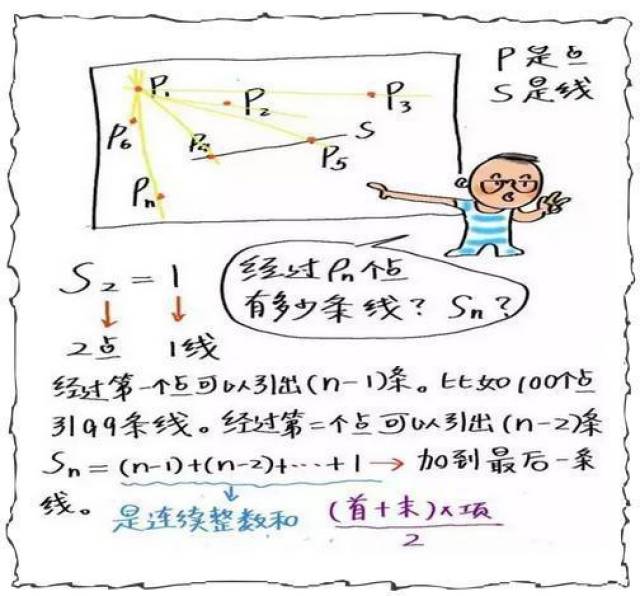 P是点
S是线
P₁
P₂
P₃
P₄
P₅
S
P₆
Pₙ
经过Pₙ个点
有多少条线？Sₙ？
S₂=1
2点 1线
经过第一个点可以引出(n-1)条。比如100个点
引99条线。经过第二个点可以引出(n-2)条
Sₙ=(n-1)+(n-2)+···+1→加到最后一条
线。
是连续整数和 (首+末)×项
2